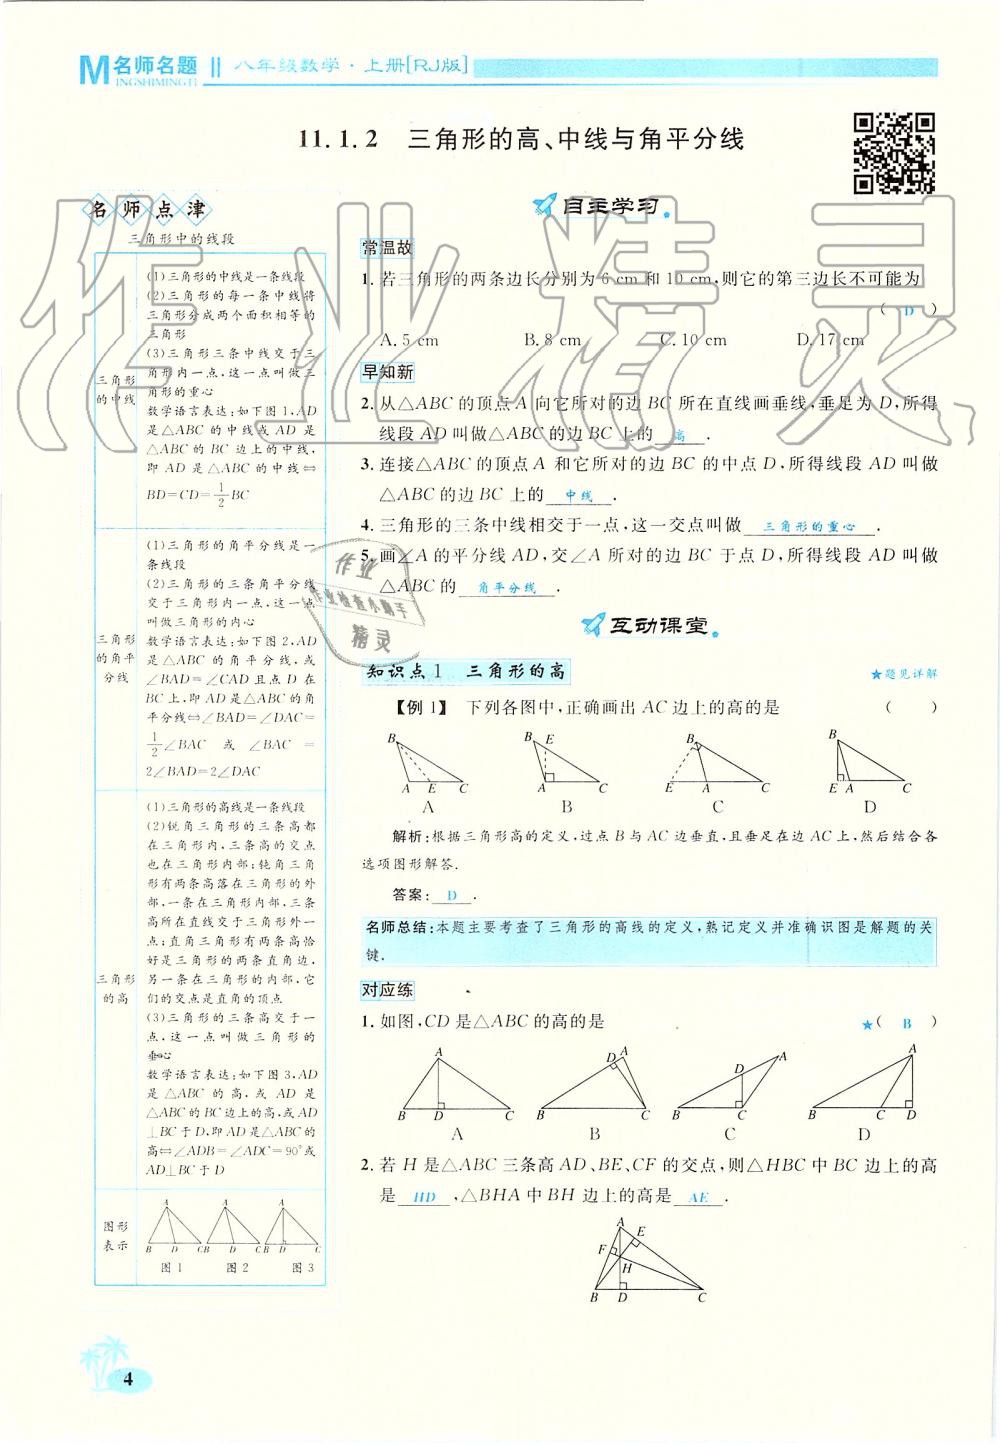 M名师名题 八年级数学·上册[RJ版]
INGSHIMINGTI
11.1.2 三角形的高、中线与角平分线
名师点津
三角形中的线段
三角形
的中线
(1)三角形的中线是一条线段
(2)三角形的每一条中线将
三角形分成两个面积相等的
三角形
(3)三角形三条中线交于三
角形内一点,这一点叫做三
角形的重心
数学语言表达:如下图1,AD
是△ABC的中线或AD是
△ABC的BC边上的中线,
即AD是△ABC的中线⇔
BD=CD=1/2BC
三角形
的角平
分线
(1)三角形的角平分线是一
条线段
(2)三角形的三条角平分线
交于三角形内一点,这一点
叫做三角形的内心
数学语言表达:如下图2,AD
是△ABC的角平分线,或
∠BAD=∠CAD且点D在
BC上,即AD是△ABC的角
平分线⇔∠BAD=∠DAC=
1/2∠BAC 或 ∠BAC =
2∠BAD=2∠DAC
三角形
的高
(1)三角形的高线是一条线段
(2)锐角三角形的三条高都
在三角形内,三条高的交点
也在三角形内部;钝角三角
形有两条高落在三角形的外
部,一条在三角形内部,三条
高所在直线交于三角形外一
点;直角三角形有两条高恰
好是三角形的两条直角边,
另一条在三角形的内部,它
们的交点是直角的顶点
(3)三角形的三条高交于一
点,这一点叫做三角形的
垂心
数学语言表达:如下图3,AD
是△ABC的高,或AD是
△ABC的BC边上的高,或AD
⊥BC于D,即AD是△ABC的
高⇔∠ADB=∠ADC=90°或
AD⊥BC于D
图形
表示
A A A
B D C B D C B D C
图1 图2 图3
4
自主学习
常温故
1. 若三角形的两条边长分别为6 cm和10 cm,则它的第三边长不可能为
( D )
A. 5 cm B. 8 cm C. 10 cm D. 17 cm
早知新
2. 从△ABC的顶点A向它所对的边BC所在直线画垂线,垂足为D,所得
线段AD叫做△ABC的边BC上的 高 .
3. 连接△ABC的顶点A和它所对的边BC的中点D,所得线段AD叫做
△ABC的边BC上的 中线 .
4. 三角形的三条中线相交于一点,这一交点叫做 三角形的重心 .
5. 画∠A的平分线AD,交∠A所对的边BC于点D,所得线段AD叫做
△ABC的 角平分线 .
互动课堂
知识点1 三角形的高 ★题见详解
【例1】 下列各图中,正确画出AC边上的高的是 ( )
B B E B B
A E C A C E A C E A C
A B C D
解析:根据三角形高的定义,过点B与AC边垂直,且垂足在边AC上,然后结合各
选项图形解答.
答案: D .
名师总结:本题主要考查了三角形的高线的定义,熟记定义并准确识图是解题的关
键.
对应练
1. 如图,CD是△ABC的高的是 ★( B )
A D A D A A
B D C B C B C B C D
A B C D
2. 若H是△ABC三条高AD、BE、CF的交点,则△HBC中BC边上的高
是 HD ,△BHA中BH边上的高是 AE .
A
F E
H
B D C
作业精灵
作业
作业检查小助手
精灵